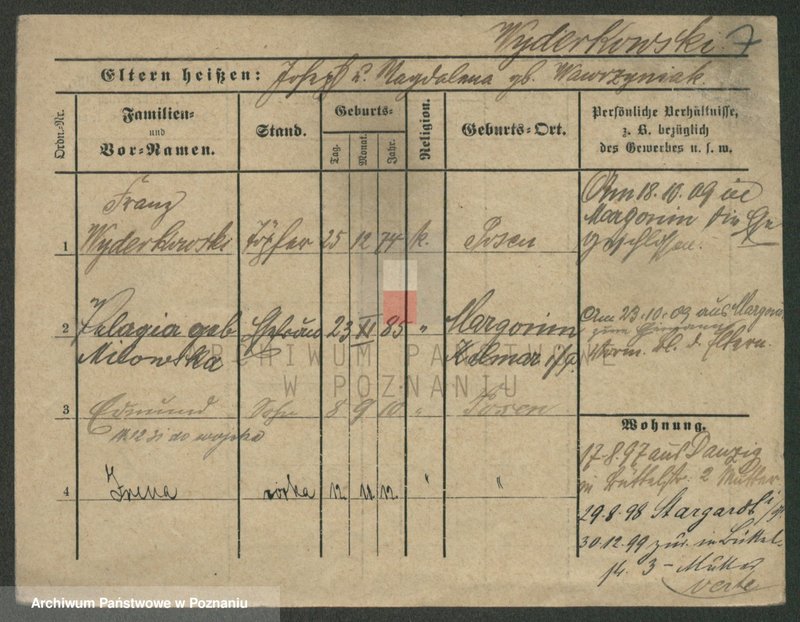 Wyderkowski. 7
Eltern heißen: Joseph u. Magdalena gb. Wawrzyniak.
Ordn.-Nr.
Familien-
und
Vor-Namen.
Stand.
Geburts-
Tag.
Monat.
Jahr.
Religion.
Geburts-Ort.
Persönliche Verhältnisse,
z. B. bezüglich
des Gewerbes u. s. w.
Franz
1 Wyderkowski Töpfer 25 12 74 k. Posen
Am 18.10.09 in
Margonin die Ehe
geschlossen.
2 Pelagia geb Ehefrau 23 XI 85 " Margonin
Milowska Kolmar i/P.
Am 23.10.09 aus Margonin
Worm. bl. d. Eltern.
3 Edmund Sohn 8 9 10 " Posen
do wojska
4 Irena córka 12 11 12 " "
Wohnung.
17.8.97 aus Danzig
in Büttelstr. 2 Mutter
29.8.98 Stargardt i/P.
30.12.99 zur. in Büttel-
str. 3 - Mutter
verte
ARCHIWUM PAŃSTWOWE
W POZNANIU
Archiwum Państwowe w Poznaniu